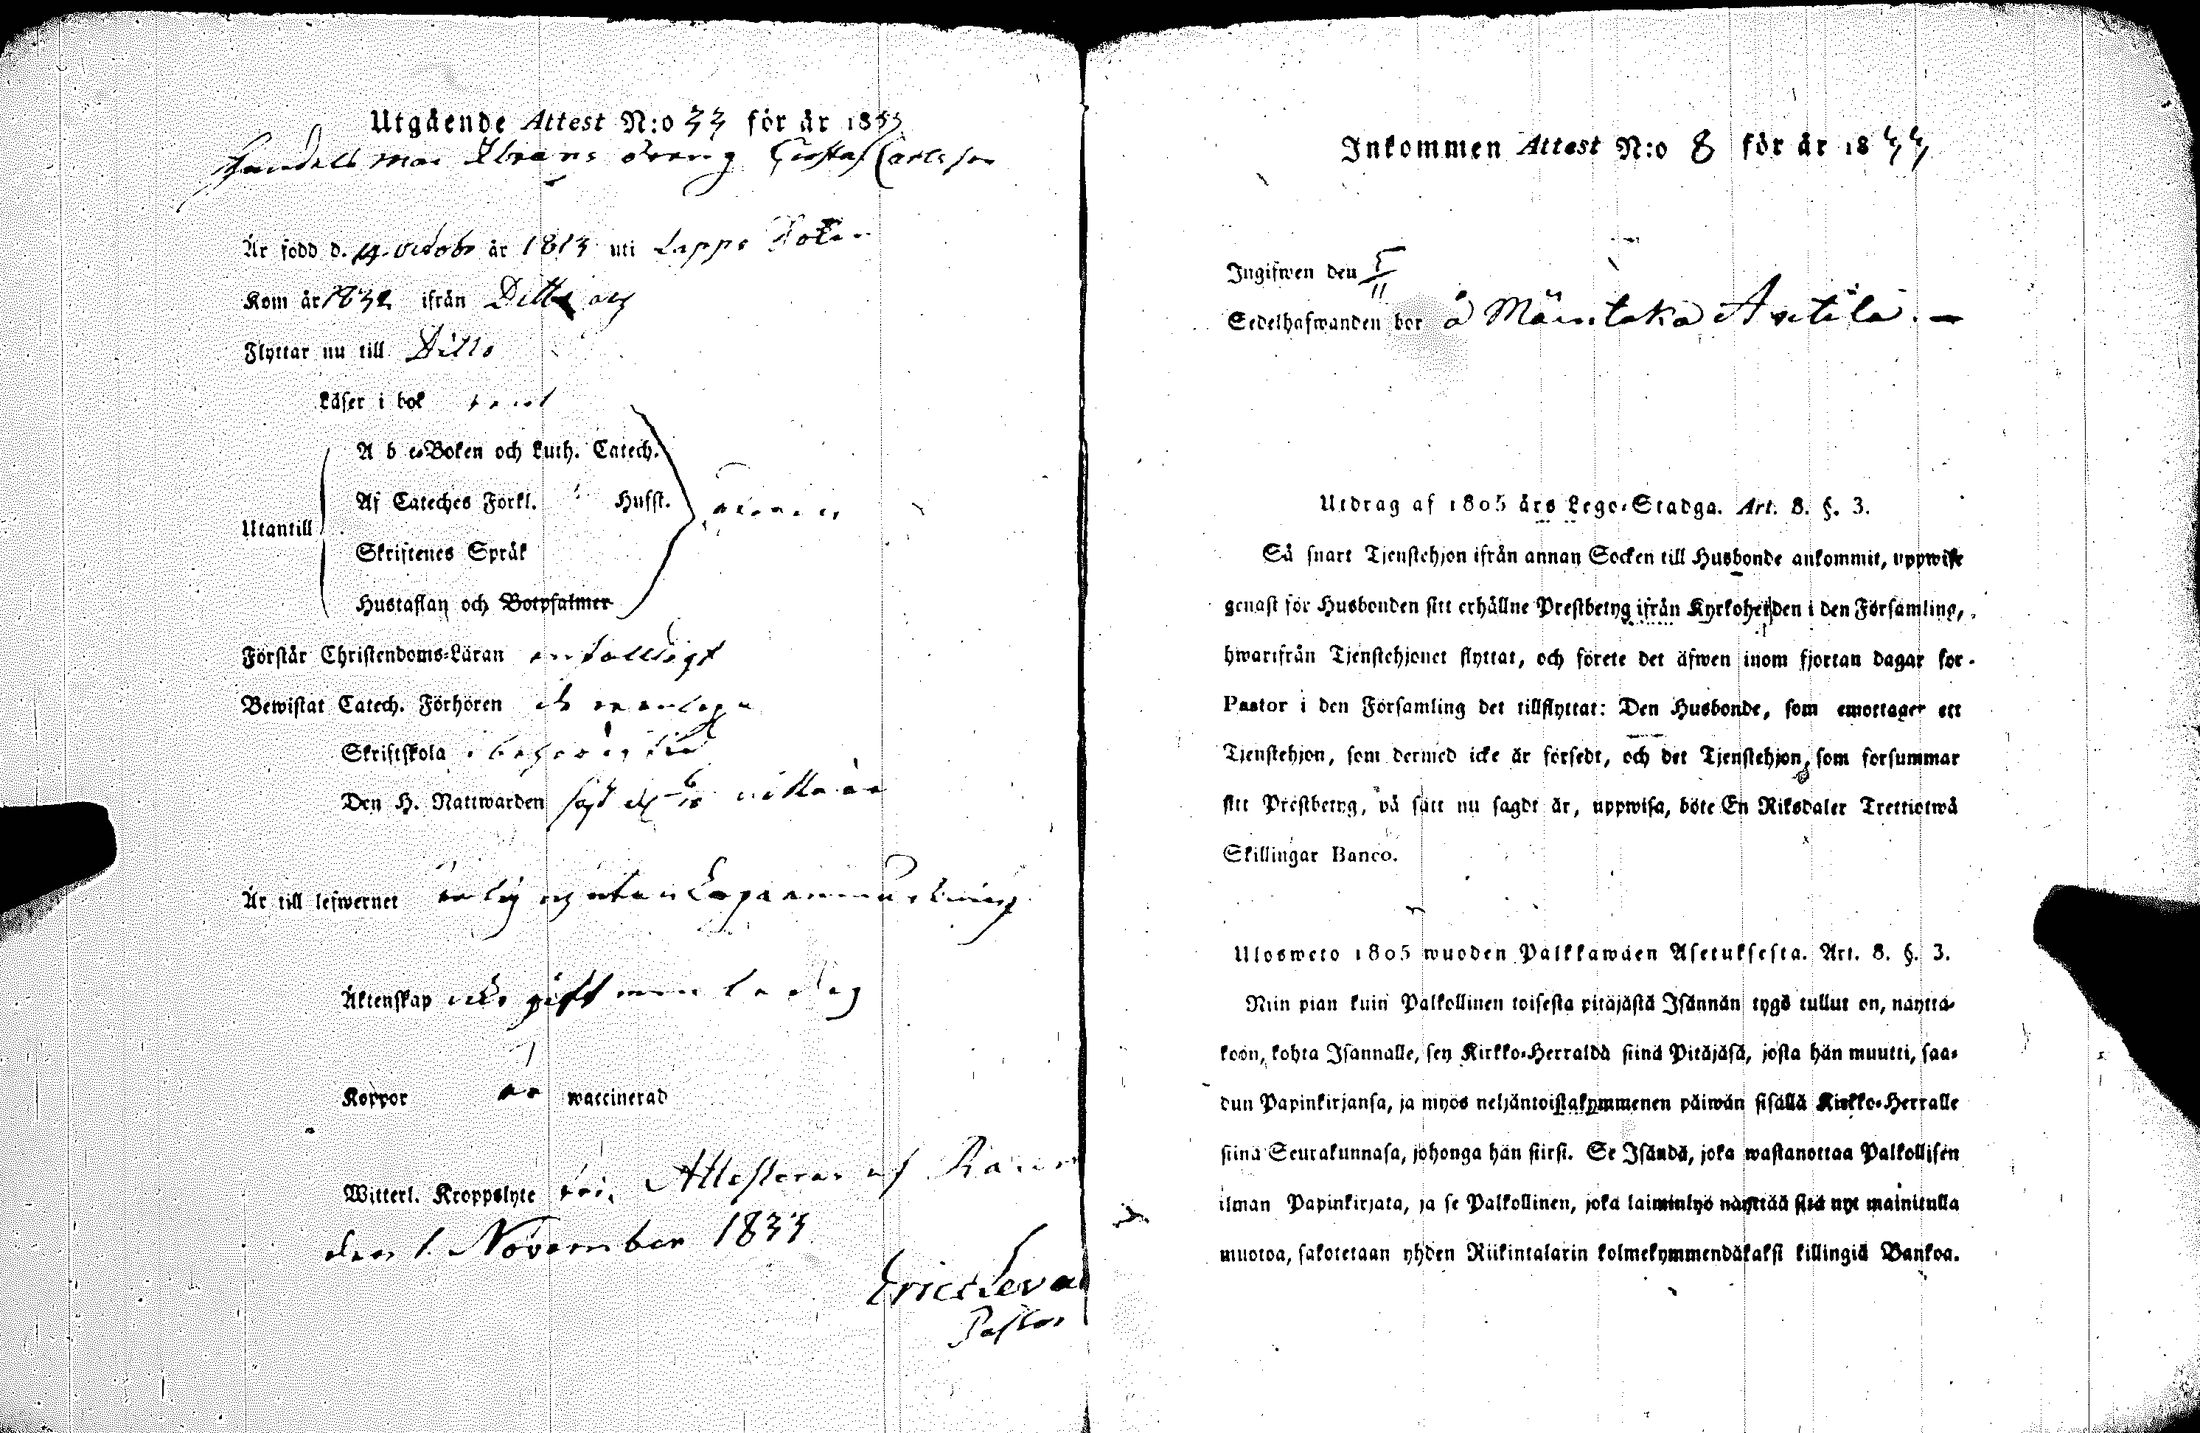 Utgående Attest N:o 33 för år 1833
Handels man Ilvans dreng Gustaf Carlsson
Är född d. 14 Octobr år 1813 uti Lappo Soken
Kom år 1832 ifrån Ditto och
Flyttar nu till Ditto
Läser i bok rent
A b c-Boken och Luth. Catech.
Af Cateches Förkl. Hufst.
Utantill
Skriftenes Språk
Hustaflan och Botpsalmer
Förstår Christendoms-Läran enfalldigt
Bewistat Catech. Förhören
Skriftskola i behörig tid
Den H. Nattwarden sist
Är till lefwernet ärlig og utan Laga anmärkning
Äktenskap icke gift men ledig
Koppor är waccinerad
Witterl. Kroppslyte fri. Attesteras af
den 1. November 1833
Eric Leva
Pastor
Inkommen Attest N:o 8 för år 1833
Ingifwen den 5/11
Sedelhafwanden bor å Mäntaka Antila. —
Utdrag af 1805 års Lego-Stadga. Art. 8. §. 3.
Så snart Tjenstehjon ifrån annan Socken till Husbonde ankommit, uppwise
genast för Husbonden sitt erhållne Prestbetyg ifrån Kyrkoherden i den Församling,
hwarifrån Tjenstehjonet flyttat, och förete det äfwen inom fjortan dagar för
Pastor i den Församling det tillflyttat: Den Husbonde, som emottager ett
Tjenstehjon, som dermed icke är försedt, och det Tjenstehjon, som försummar
sitt Prestbetyg, på sätt nu sagdt är, uppwisa, böte En Riksdaler Trettiotwå
Skillingar Banco.
Ulosweto 1805 wuoden Palkkawäen Asetuksesta. Art. 8. §. 3.
Niin pian kuin Palkollinen toisesta pitäjästä Isännän tygö tullut on, näyttä-
köön, kohta Isännälle, sen Kirkko-Herralda siinä Pitäjäsä, josta hän muutti, saa-
dun Papinkirjansa, ja myös neljäntoistakymmenen päiwän sisällä Kirkko-Herralle
siinä Seurakunnasa, johonga hän siirsi. Se Isändä, joka wastanottaa Palkollisen
ilman Papinkirjata, ja se Palkollinen, joka laiminlyö näyttää sitä nyt mainitulla
muotoa, sakotetaan yhden Riikintalarin kolmekymmendäkaksi killingiä Bankoa.